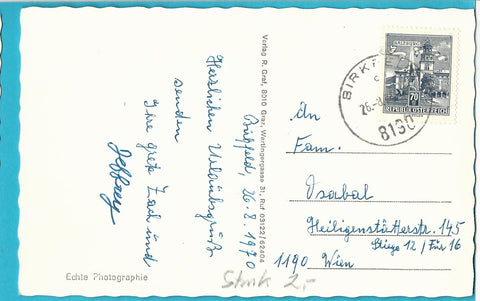 Birkfeld, 26.8.1970
Herzlichen Urlaubsgruß
senden
Ihre Grete Zach und
Jeffrey
Echte Photographie
Verlag R. Graf, 8010 Graz, Wartingergasse 31, Ruf 03122/62404
SALZBURG
70
REPUBLIK ÖSTERREICH
BIRKFE
26.-8.
8190
An
Fam.
Osabal
Heiligenstätterstr. 145
Stiege 12 / Tür 16
1190 Wien
2,-